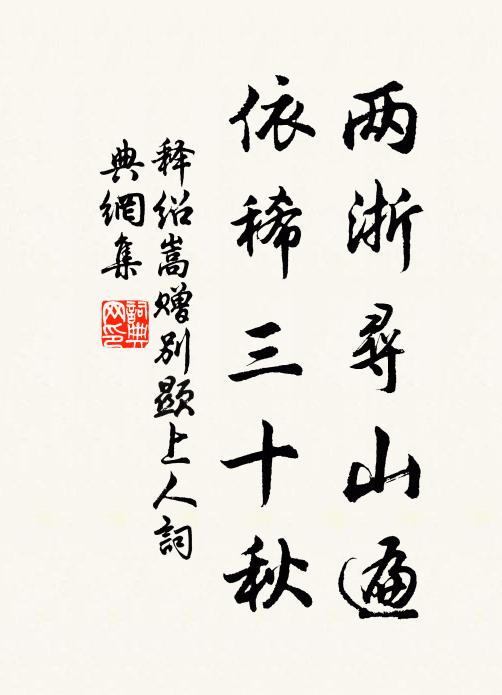 两浙尋山遍
依稀三十秋
释绍嵩赠别顕上人詞
典網集
詞典网印